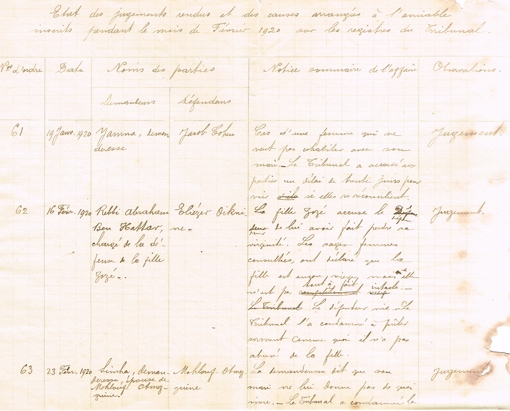 Etat des jugements rendus et des causes arrangées à l'amiable
inscrits pendant le mois de Février 1920 sur les registres du Tribunal.
Nos d'ordre Date Noms des parties Notice sommaire de l'affaire Observations.
Demandeurs Défendeurs
61 19 Janv. 1920 Yamna, deman-
deresse Jacob Cohen Cas d'une femme qui ne
veut pas cohabiter avec son
mari. Le Tribunal a accordé aux
parties un délai de trente jours pour
voir si elles se réconcilient. Jugement
62 16 Fév. 1920 Rabbi Abraham
Ben Hattar,
chargé de la dé-
fense de la fille
Zozé. Eliézer
ne. La fille Zozé accuse le
de lui avoir fait perdre sa
virginité. Les sages femmes
consultées, ont déclaré que la
fille est encore vierge mais elle
n'est pas tout à fait intacte.
Le Tribunal Le défendeur nie. Le
Tribunal l'a condamné à prêter
serment comme quoi il n'a pas
abusé de la fille. Jugement.
63 23 Fév. 1920 Simha, deman-
deresse, épouse de
Mokhlouf
Mokhlouf La demanderesse dit que son
mari ne lui donne pas de quoi
vivre. Le Tribunal a condamné le Jugement